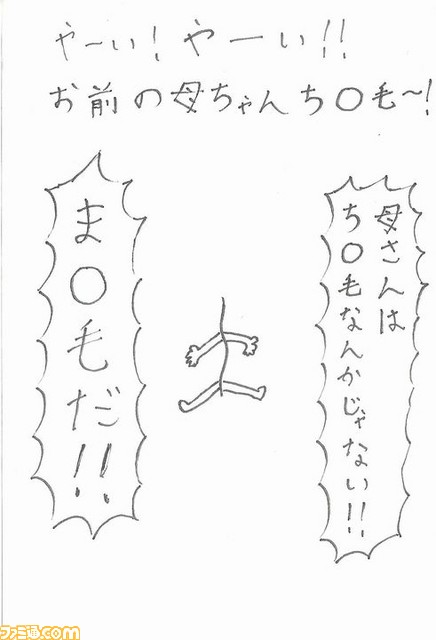 やーい!やーい!!
お前の母ちゃんち〇毛〜!
母さんは
ち〇毛なんかじゃない!!
ま〇毛だ!!
ファミ通.com